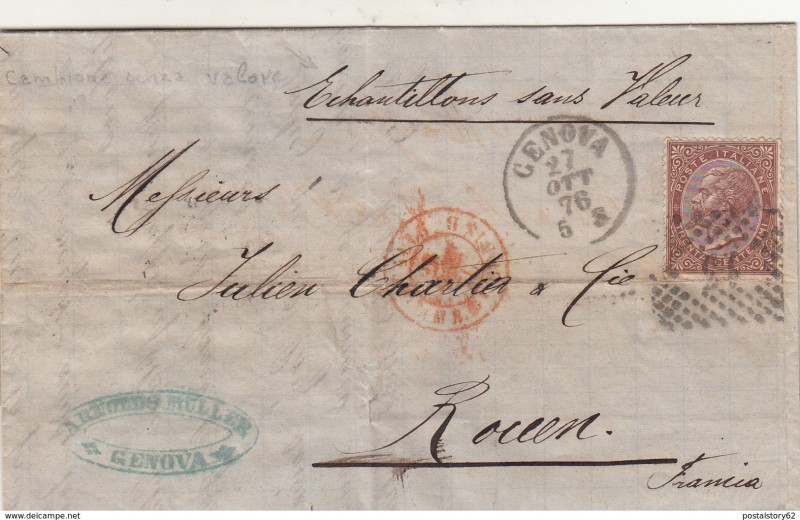 Campione senza valore
Echantillons sans Valeur
GENOVA
27
OTT
76
5 S
POSTE ITALIANE
Messieurs
Julien Chartier & Cie
ARNOLDO MULLER
GENOVA
Rouen.
Francia
delcampe.net
postalstory62